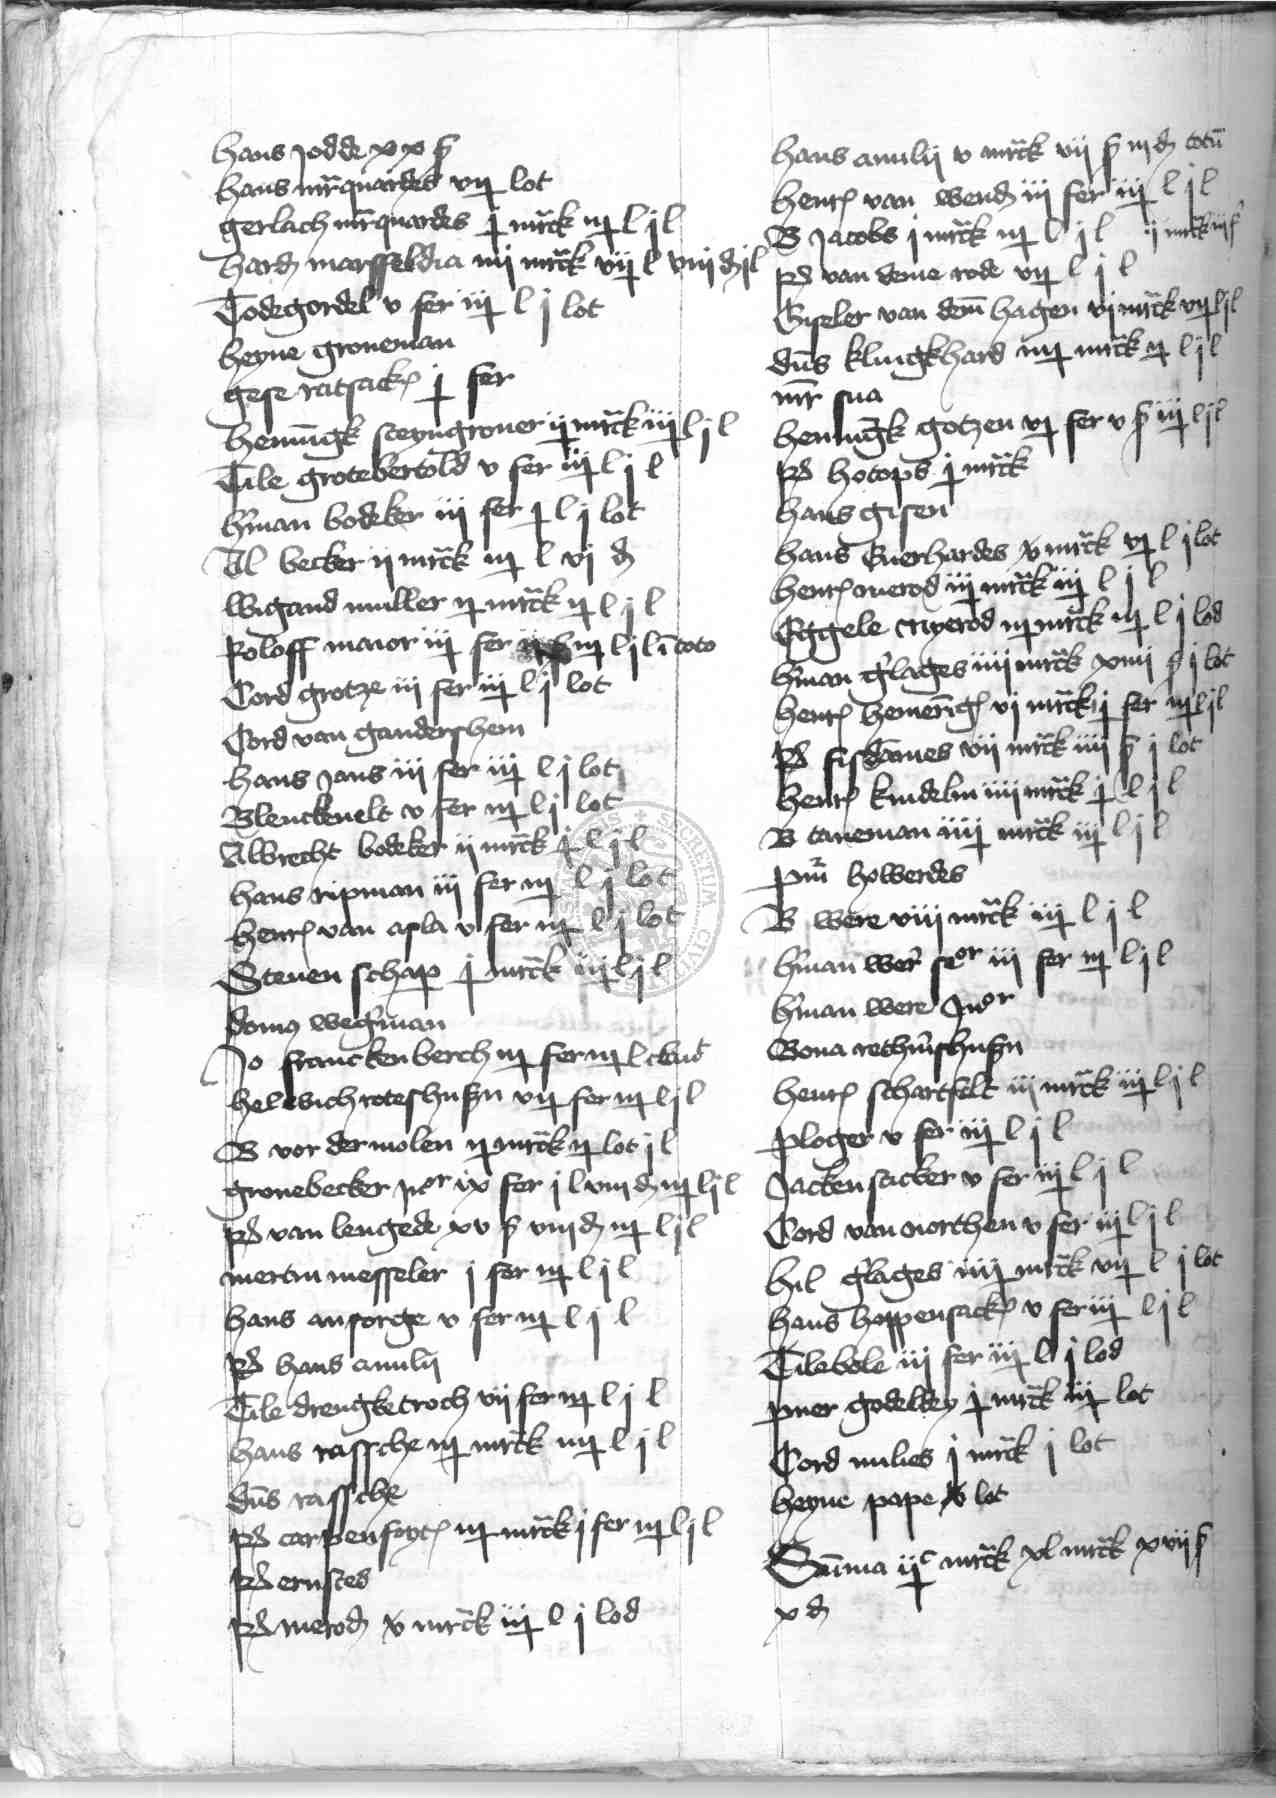 hans Jodde xx ß
hans mrquardes vij lot
gerlach mrquardes j mrck iij l j l
hard marsfeldia iiij mrck vij l viij d j l
Todegordel v fer iij l j lot
heyne groneman
gese ratsack j fer
henningk steyngroner ij mrck iij l j l
Tile grotebertold v fer iij l j l
hman bodeker iij fer j l j lot
Al becker ij mrck iij l vj d
Wigand muller ij mrck ij l j l
Roloff maior iij fer iij l j l i toto
Cord grotze iij fer iij l j lot
Cord van gandershem
hans Jans iij fer iij l j lot
Blenckenelt v fer iij l j lot
Albrecht bodeker ij mrck j l j l
hans ripman iij fer iij l j lot
henr van apla v fer iij l j lot
Steuen schap j mrck iij l j l
domus wegman
Jo franckenberch iij fer iij l
helewich roteshußen vij fer iij l j l
B vor der molen ij mrck ij lot j l
gronebecker jor ix fer j l viij d iij l j l
Rd van lengede xv ß viij d iij l j l
mertin messeler j fer iij l j l
hans ansorge v fer iij l j l
Rd hans amilij
Tile drengketroch vij fer iij l j l
hans rassche iij mrck iiij l j l
dns rassche
Rd carpensoyt iij mrck j fer iij l j l
Rd ernstes
Rd merod v mrck iij l j lod
hans amilij v mrck vij ß iij d totu
henr van wend iij fer iij l j l
B Jacobs j mrck iij l j l ij mrck iij ß
Rd van deme rode vij l j l
Giseler van dem hagen vj mrck vij l j l
dns klingkhard iiij mrck ij l j l
mr sua
henningk gotzen vj fer v ß iij l j l
Rd hotops j mrck
hans gisen
hans Euerhardes v mrck vj l j lot
henr merod iij mrck iij l j l
Eggele meyerod iij mrck iij l j lod
hman glages iiij mrck xiiij ß j lot
henr hemering vj mrck j fer iij l j l
Rd fisdames vij mrck iiij ß j lot
henr kindelin iiij mrck j l j l
B taneman iiij mrck iij l j l
pur howerdes
B were viij mrck iij l j l
hman wer seor iij fer iij l j l
hman were Juor
Bona rethmshußn
henr schartfelt iij mrck iij l j l
ploger v fer iij l j l
Jackensacker v fer iij l j l
Cord van northen v fer iij l j l
hil glages iiij mrck vij l j lot
hans hoppensack v fer iij l j l
Tilebole iij fer iij l j lod
puer godelken j mrck iij lot
Cord milies j mrck j lot
heyne pape v lot
Summa ijc mrck xl mrck xvij ß
x d